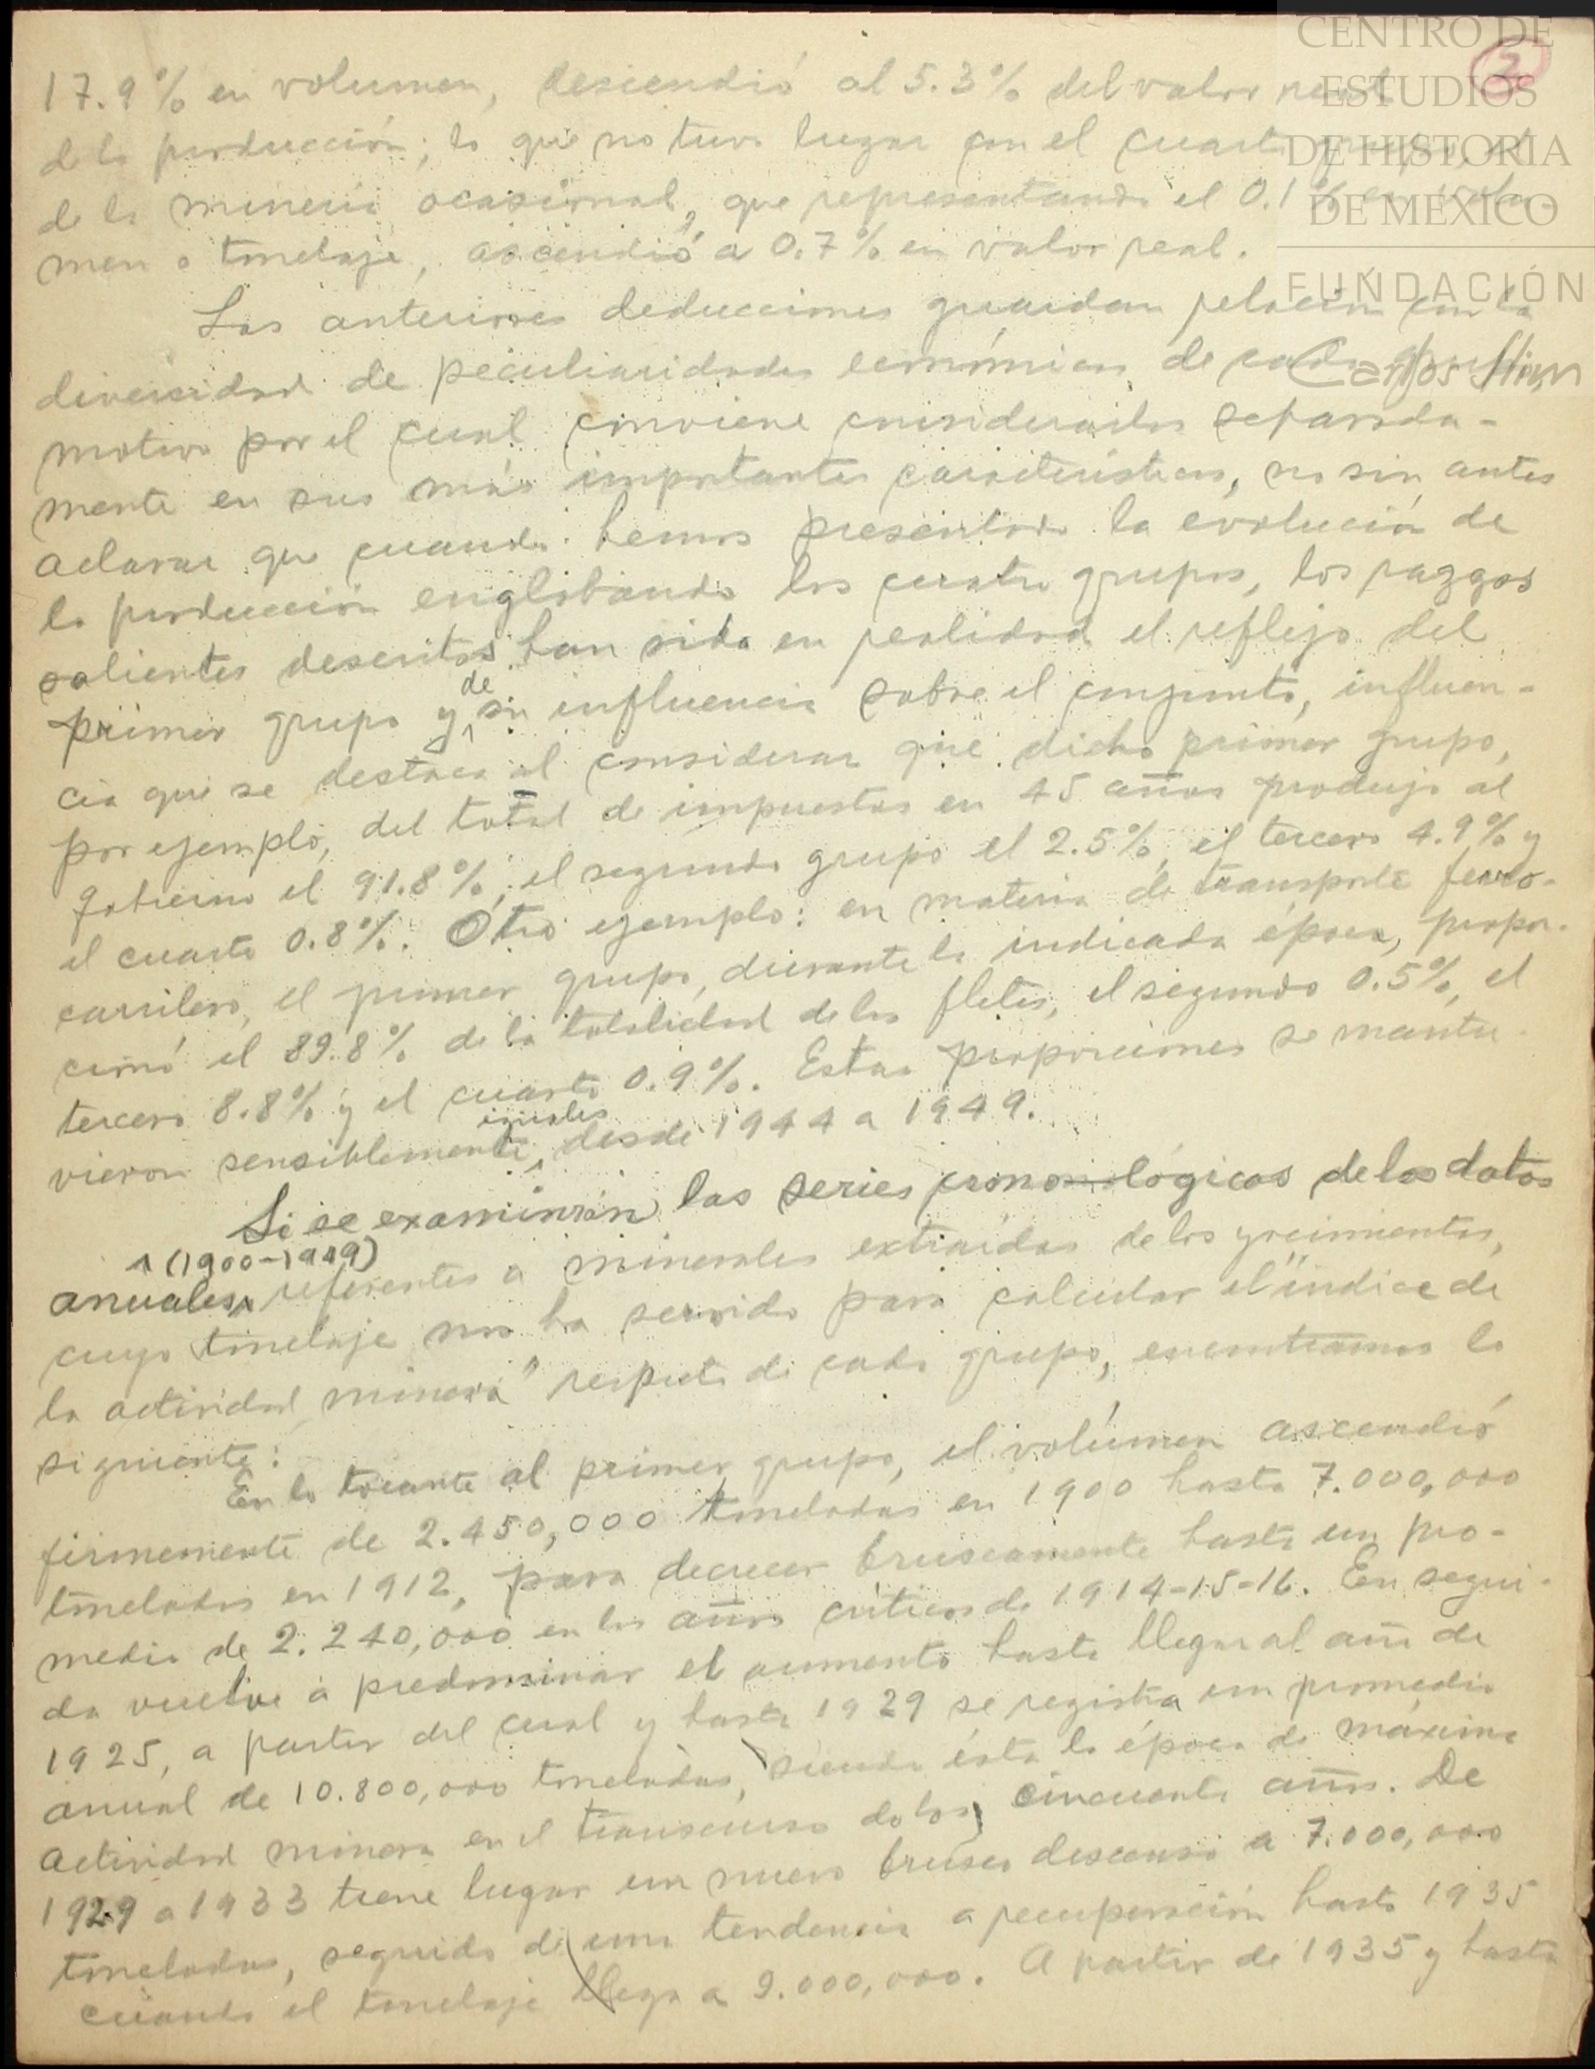 CENTRO DE
ESTUDIOS
DE HISTORIA
DE MÉXICO
FUNDACIÓN
Carlos Slim
2
17.9% en volumen, descendió al 5.3% del valor real
de la producción; lo que no tuvo lugar con el cuarto grupo, el
de la minería ocasional, que representando el 0.1% en volu-
men o tonelaje, ascendió a 0.7% en valor real.
Las anteriores deducciones guardan relación con la
divercidad de peculiaridades económicas de cada grupo,
motivo por el cual conviene considerarlos separada-
mente en sus más importantes características, no sin antes
aclarar que cuando hemos presentado la evolución de
la producción englobando los cuatro grupos, los razgos
salientes descritos han sido en realidad el reflejo del
primer grupo y de su influencia sobre el conjunto, influen-
cia que se destaca al considerar que dicho primer grupo,
por ejemplo, del total de impuestos en 45 años produjo al
gobierno el 91.8%, el segundo grupo el 2.5%, el tercero 4.9% y
el cuarto 0.8%. Otro ejemplo: en materia de transporte ferro-
carrilero, el primer grupo, durante la indicada época, propor-
cionó el 89.8% de la totalidad de los fletes, el segundo 0.5%, el
tercero 8.8% y el cuarto 0.9%. Estas proporciones se mantu-
vieron sensiblemente iguales desde 1944 a 1949.
Si se examinan las series cronológicas de los datos
anuales (1900-1949) referentes a minerales extraídos de los yacimientos,
cuyo tonelaje nos ha servido para calcular el "índice de
la actividad minera" respecto de cada grupo, encontramos lo
siguiente:
En lo tocante al primer grupo, el volúmen ascendió
firmemente de 2.450,000 toneladas en 1900 hasta 7.000,000
toneladas en 1912, para decrecer bruscamente hasta un pro-
medio de 2.240,000 en los años críticos de 1914-15-16. En segui-
da vuelve a predominar el aumento hasta llegar al año de
1925, a partir del cual y hasta 1929 se registra un promedio
anual de 10.800,000 toneladas, siendo ésta la época de máxima
actividad minera en el transcurso de los cincuenta años. De
1929 a 1933 tiene lugar un nuevo brusco descenso a 7.000,000
toneladas, seguido de una tendencia a recuperación hasta 1935
cuando el tonelaje llega a 9.000,000. A partir de 1935 y hasta